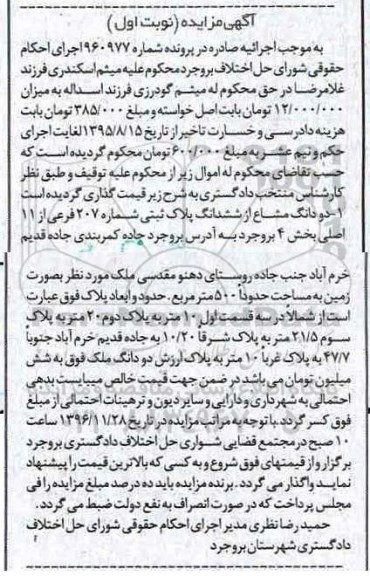 آگهی مزایده (نوبت اول)
به موجب اجرائیه صادره در پرونده شماره ۹۶۰۹۷۷ اجرای احکام
حقوقی شورای حل اختلاف بروجرد محکوم علیه میثم اسکندری فرزند
غلامرضا در حق محکوم له میثم گودرزی فرزند اسداله به میزان
۱۲/۰۰۰/۰۰۰ تومان بابت اصل خواسته و مبلغ ۳۸۵/۰۰۰ تومان بابت
هزینه دادرسی و خسارت تاخیر از تاریخ ۱۳۹۵/۸/۱۵ لغایت اجرای
حکم و نیم عشر به مبلغ ۶۰۰/۰۰۰ تومان محکوم گردیده است که
حسب تقاضای محکوم له اموال زیر از محکوم علیه توقیف و طبق نظر
کارشناس منتخب دادگستری به شرح زیر قیمت گذاری گردیده است
۱-دو دانگ مشاع از ششدانگ پلاک ثبتی شماره ۲۰۷ فرعی از ۱۱
اصلی بخش ۴ بروجرد به آدرس بروجرد جاده کمربندی جاده قدیم
خرم آباد جنب جاده روستای دهنو مقدسی ملک مورد نظر بصورت
زمین به مساحت حدودا ۵۰۰ متر مربع. حدود و ابعاد پلاک فوق عبارت
است از شمالا در سه قسمت اول ۱۰ متر به پلاک دوم ۲۰ متر به پلاک
سوم ۲۱/۵ متر به پلاک شرقا ۱۰/۲۰ به جاده قدیم خرم آباد جنوبا
۴۷/۷ به پلاک غربا ۱۰ متر به پلاک ارزش دو دانگ ملک فوق به شش
میلیون تومان می باشد در ضمن جهت قیمت خالص میبایست بدهی
احتمالی به شهرداری و دارایی و سایر دیون و ترهینات احتمالی از مبلغ
فوق کسر گردد. با توجه به مراتب مزایده در تاریخ ۱۳۹۶/۱۱/۲۸ ساعت
۱۰ صبح در مجتمع قضایی شورای حل اختلاف دادگستری بروجرد
برگزار و از قیمتهای فوق شروع و به کسی که بالاترین قیمت را پیشنهاد
نماید واگذار می گردد. برنده مزایده باید ده درصد مبلغ مزایده را فی
مجلس پرداخت که در صورت انصراف به نفع دولت ضبط می گردد.
حمیدرضا نظری مدیر اجرای احکام حقوقی شورای حل اختلاف
دادگستری شهرستان بروجرد